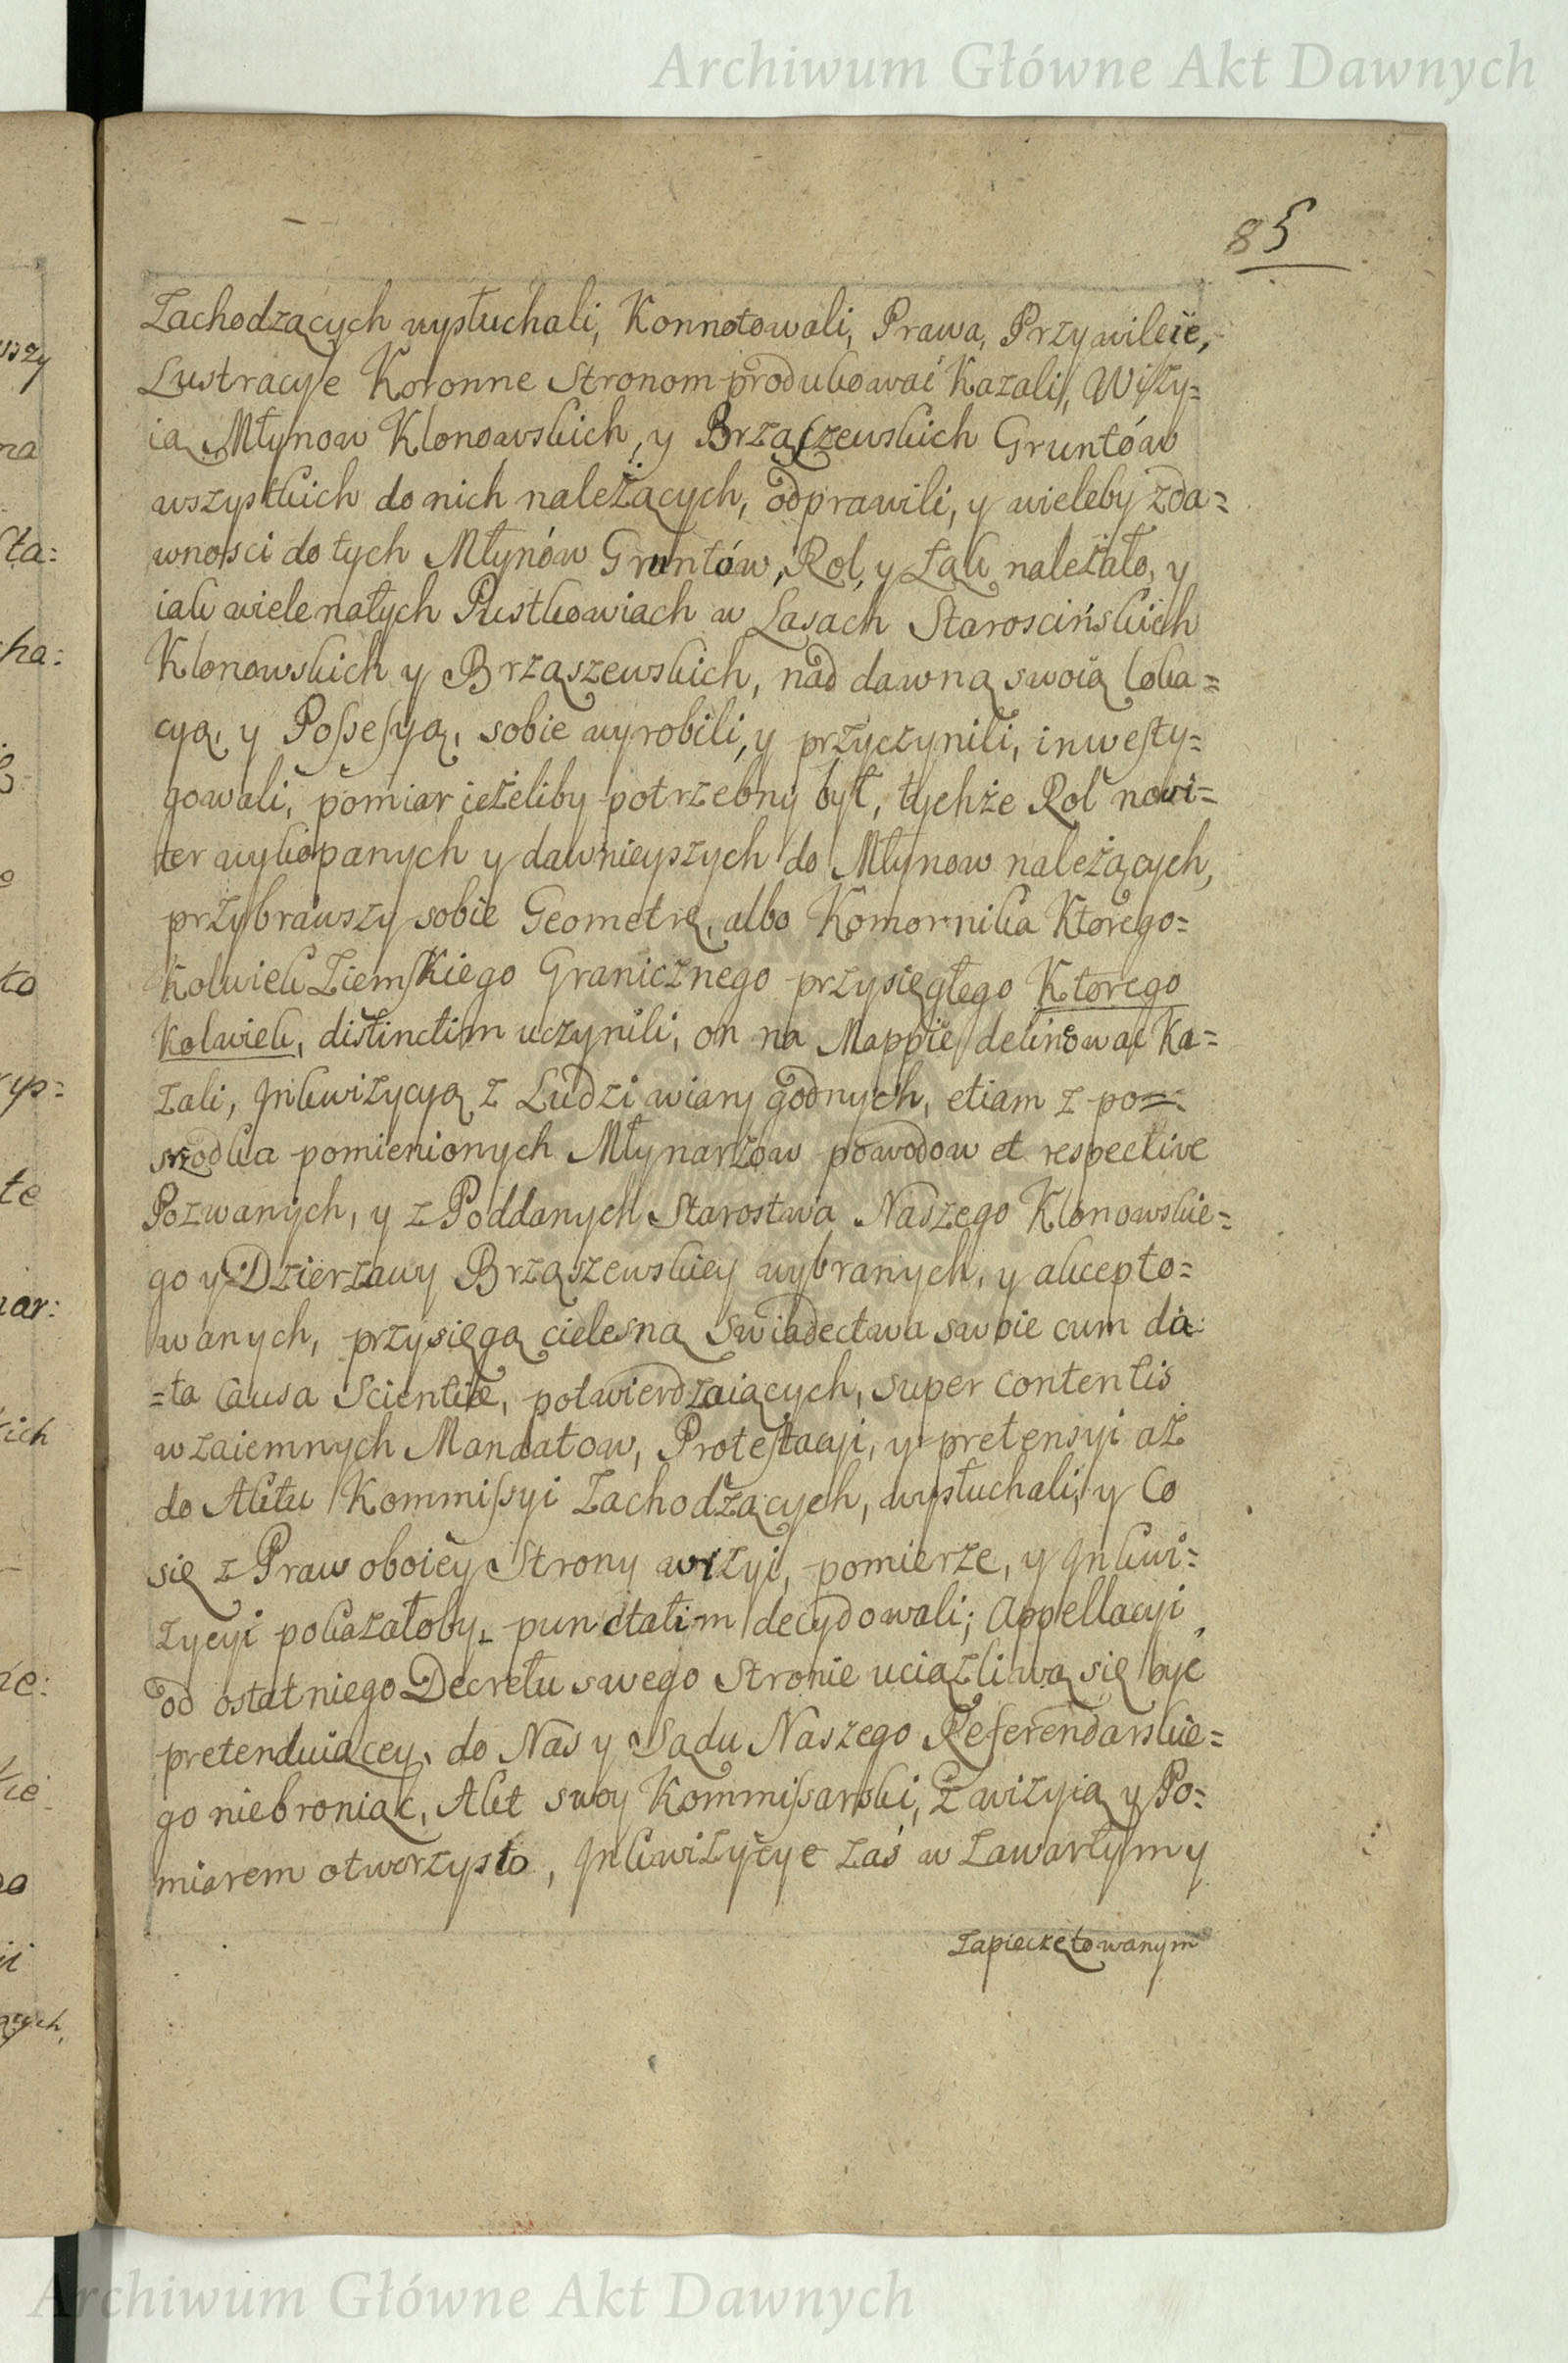 Archiwum Główne Akt Dawnych
85
Zachodzących wysłuchali, Konnotowali, Prawa, Przywileie,
Lustracye Koronne Stronom produkować Kazali, Wizy=
ią Młynow Klonowskich, y Brząszewskich Gruntów
wszystkich do nich należących, odprawili, y wieleby zda=
wności do tych Młynów Gruntów, Rol, y Łąk należało, y
iak wiele natych Pustkowiach w Lasach Starościńskich
Klonowskich y Brząszewskich, nad dawną swoią loka=
cyą, y Possesyą, sobie wyrobili, y przyczynili, inwesty=
gowali, pomiar ieżeliby potrzebny był, tychże Rol nowi=
ter wykopanych y dawnieyszych do Młynow należących,
przybrawszy sobie Geometrę, albo Komornika Ktorego=
kolwiek Ziemskiego Granicznego przysięgłego Ktorego
Kolwiek, distinctim uczynili, on na Mappie delinowac Ka=
zali, Inkwizycyą z Ludzi wiary godnych, etiam z po=
srzodka pomienionych Młynarzow powodow et respective
Pozwanych, y z Poddanych Starostwa Naszego Klonowskie=
go y Dzierzawy Brząszewskiey wybranych, y akcepto=
wanych, przysięgą cielesną Swiadectwa swoie cum da
=ta Causa Scientiæ, potwierdzaiących, super contentis
wzaiemnych Mandatow, Protestacyi, y pretensyi aż
do Aktu Kommissyi Zachodzących, wysłuchali, y Co
się z Praw oboiey Strony wizyi, pomierze, y Inkwi=
zycyi pokazałoby, punctatim decydowali; Appellacyi
od ostatniego Decretu swego Stronie uciązliwą się byc
pretenduiącey, do Nas y Sądu Naszego Referendarskie=
go niebroniąc, Akt swoy Kommissarski, z wizyią y Po=
miarem otworzysto, Inkwizycye zaś w zawartym y
zapieczętowanym
Archiwum Główne Akt Dawnych